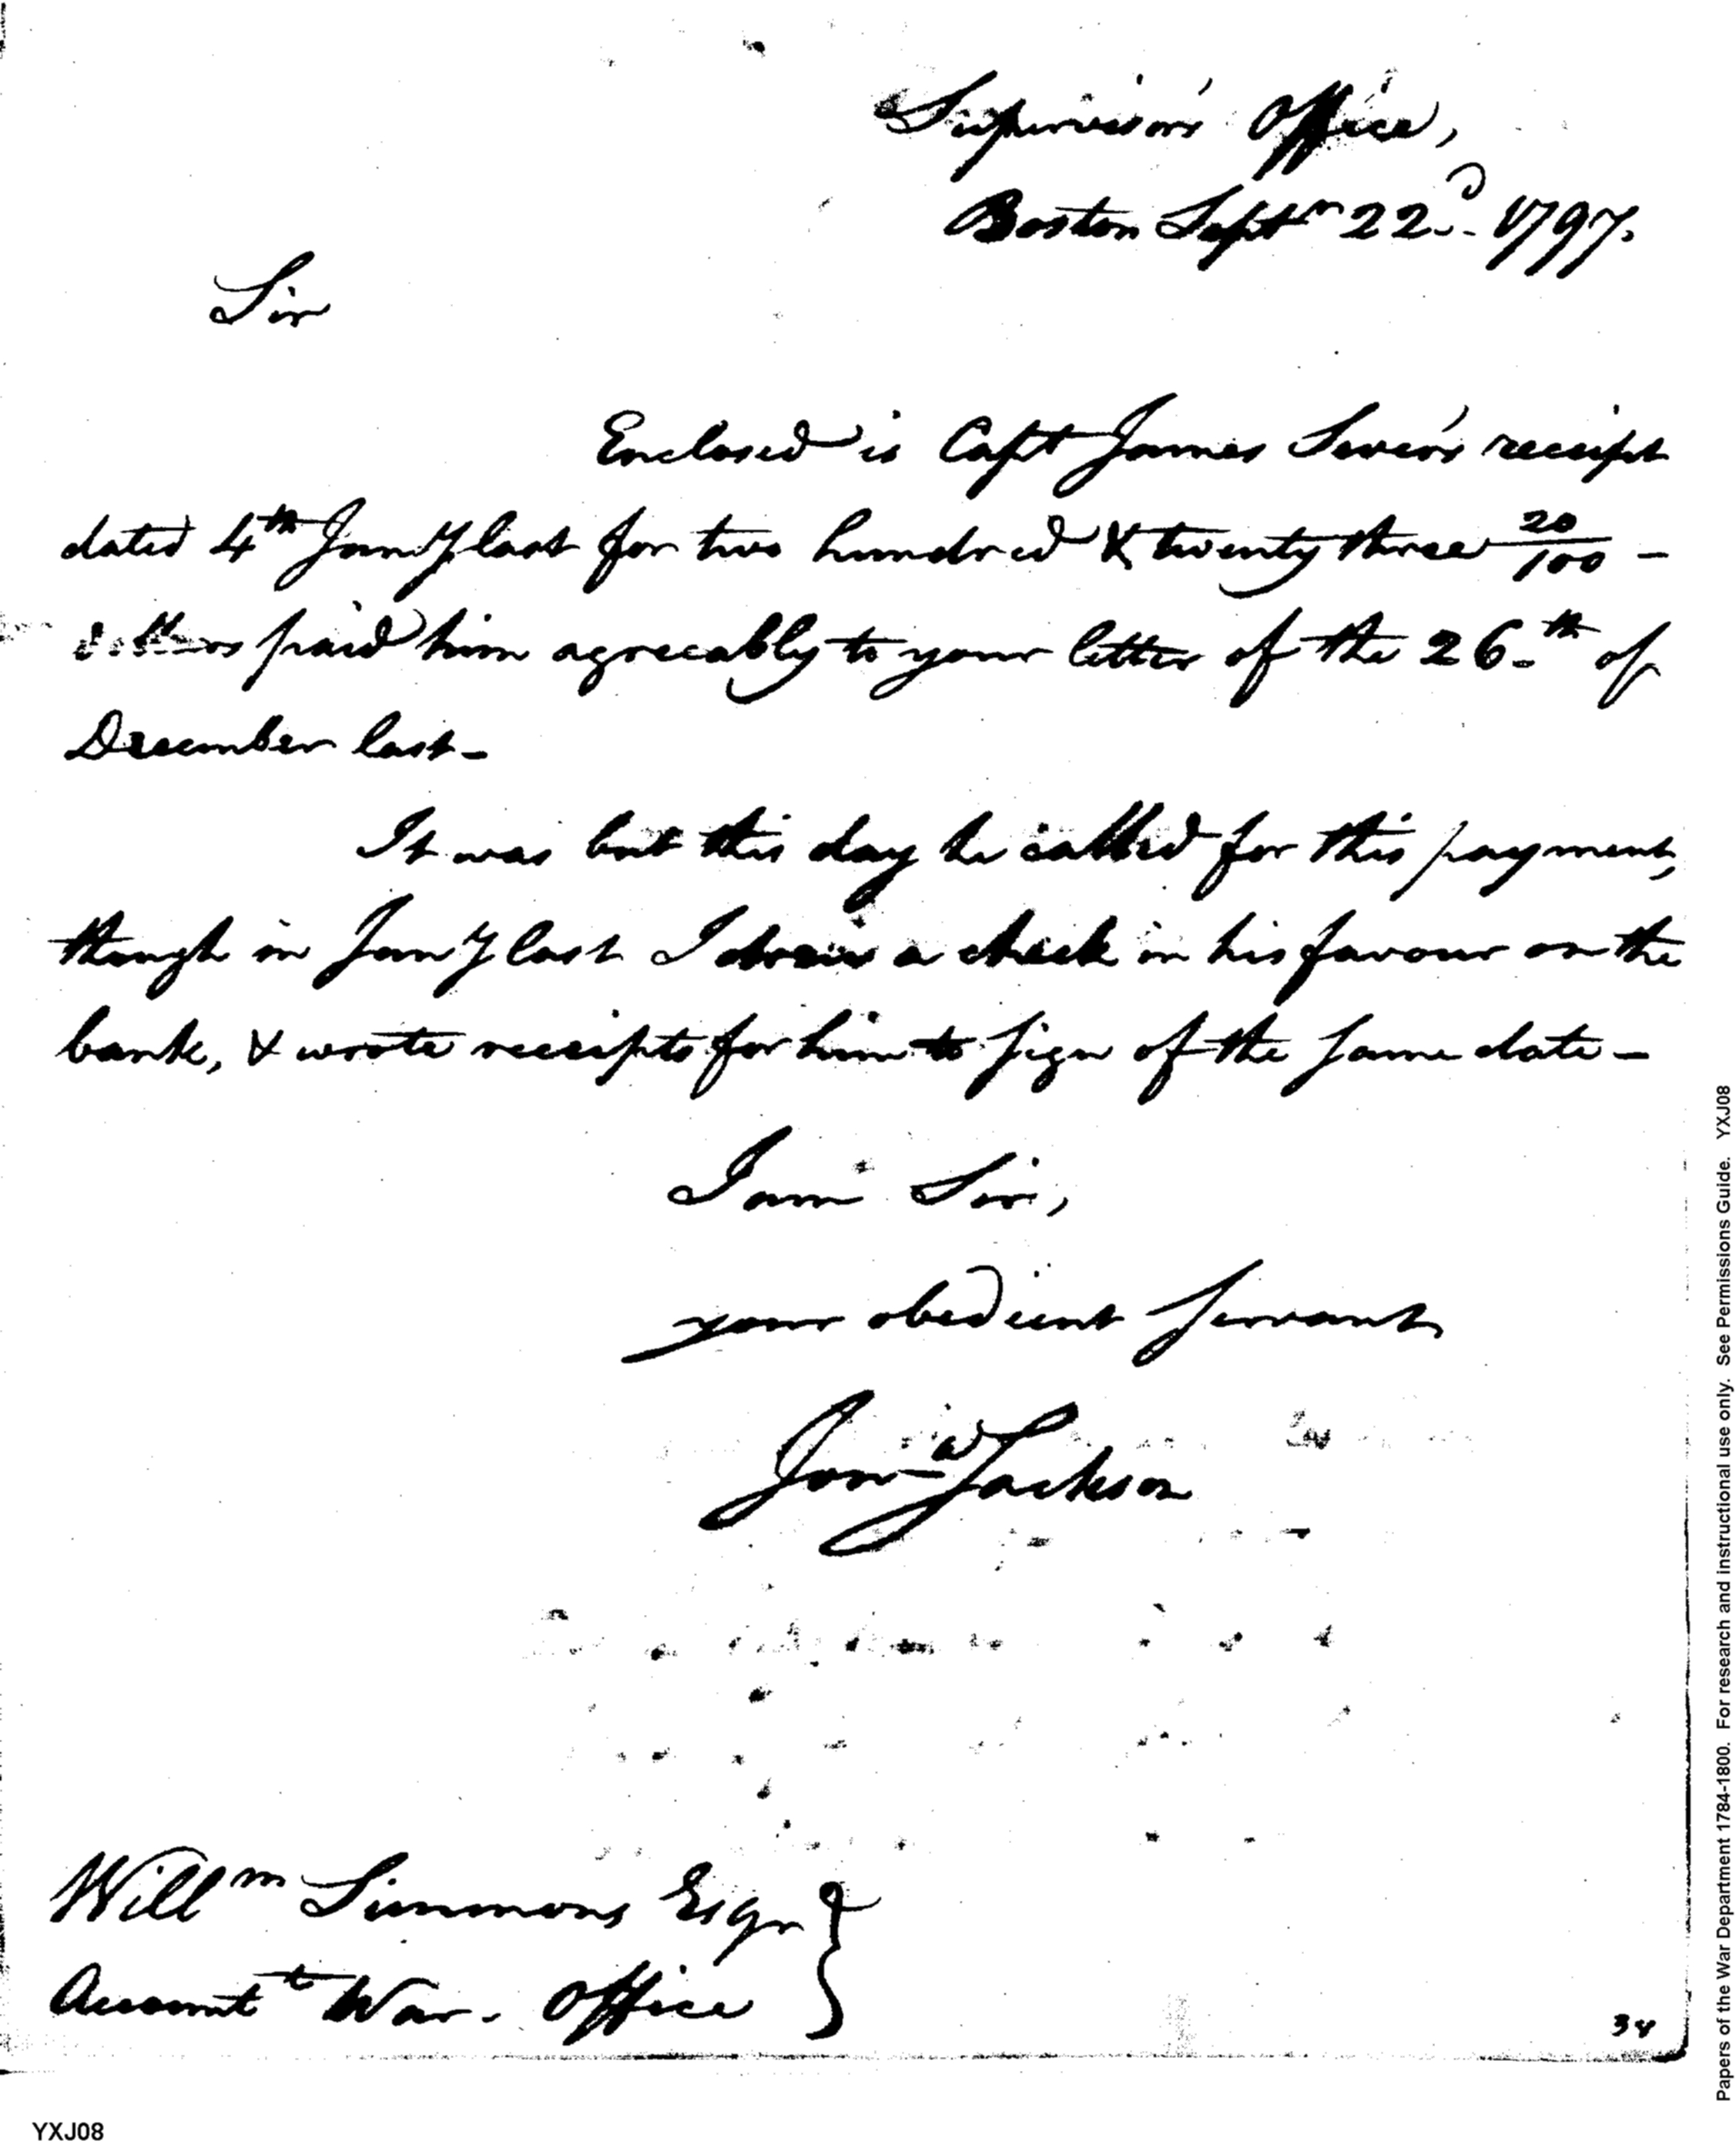 Supervisor's Office,
Boston Septr 22d. 1797.
Sir
Enclosed is Capt James Sever's receipt
dated 4th Jany last for two hundred & twenty three 20/100 -
dollars paid him agreeably to your letter of the 26th of
December last-
It was but this day he called for this payment,
though in Jany last I drew a check in his favour on the
bank, & wrote receipts for him to sign of the same date -
I am Sir,
your obedient servant
Jona Jackson
Willm Simmons Esqr
Accountt War- Office
34
YXJ08
Papers of the War Department 1784-1800. For research and instructional use only. See Permissions Guide. YXJ08